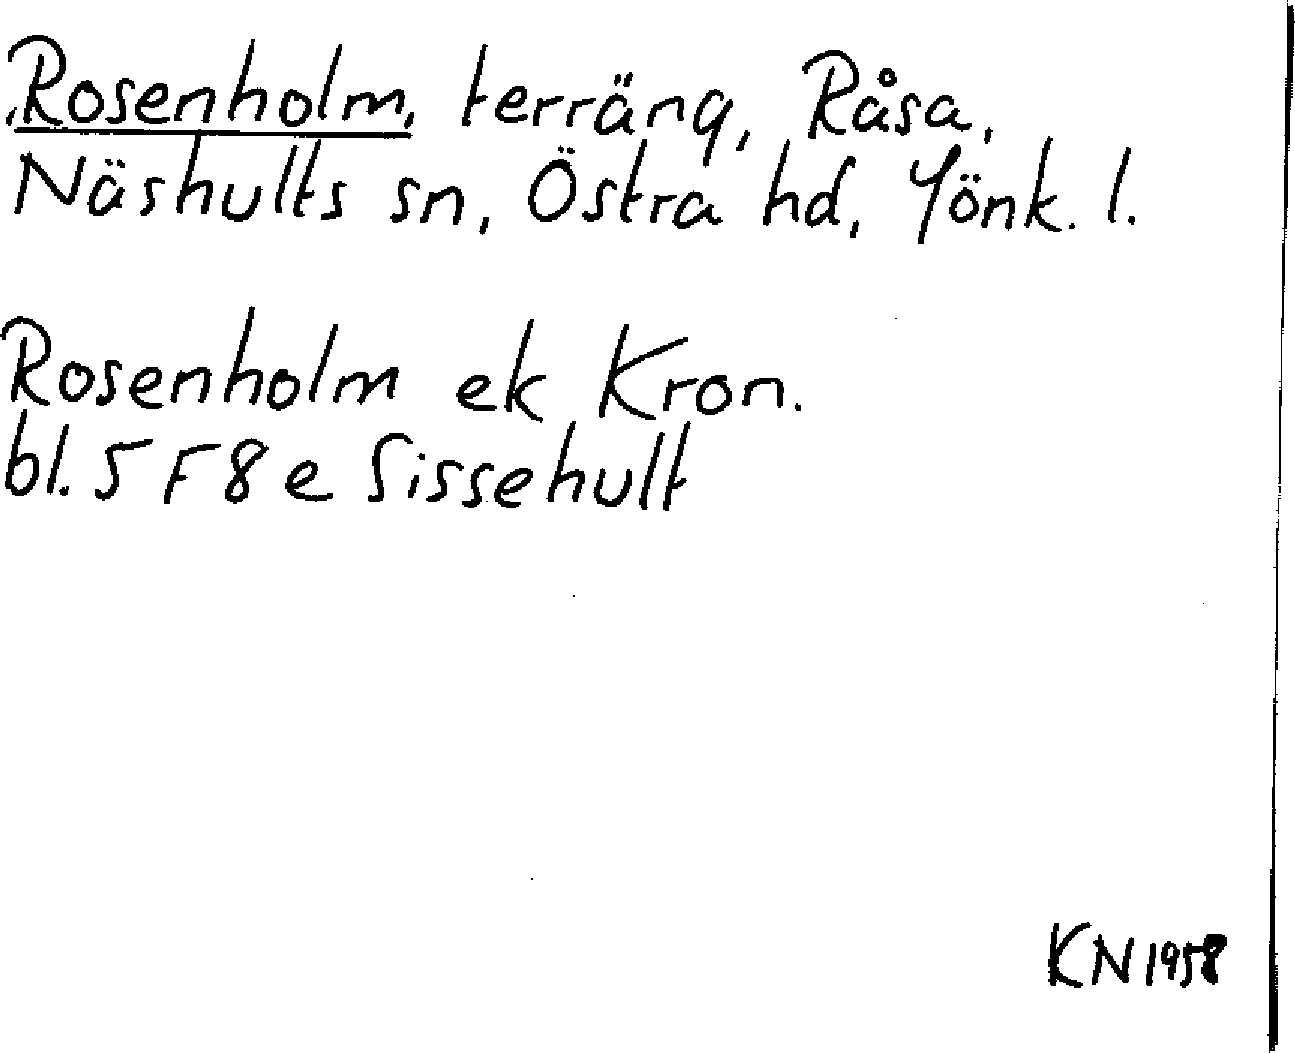 Rosenholm, terräng, Råsa,
Näshults sn, Östra hd, Jönk. l.
Rosenholm ek Kron.
bl. 5 F 8 e Sissehult
KN 1958